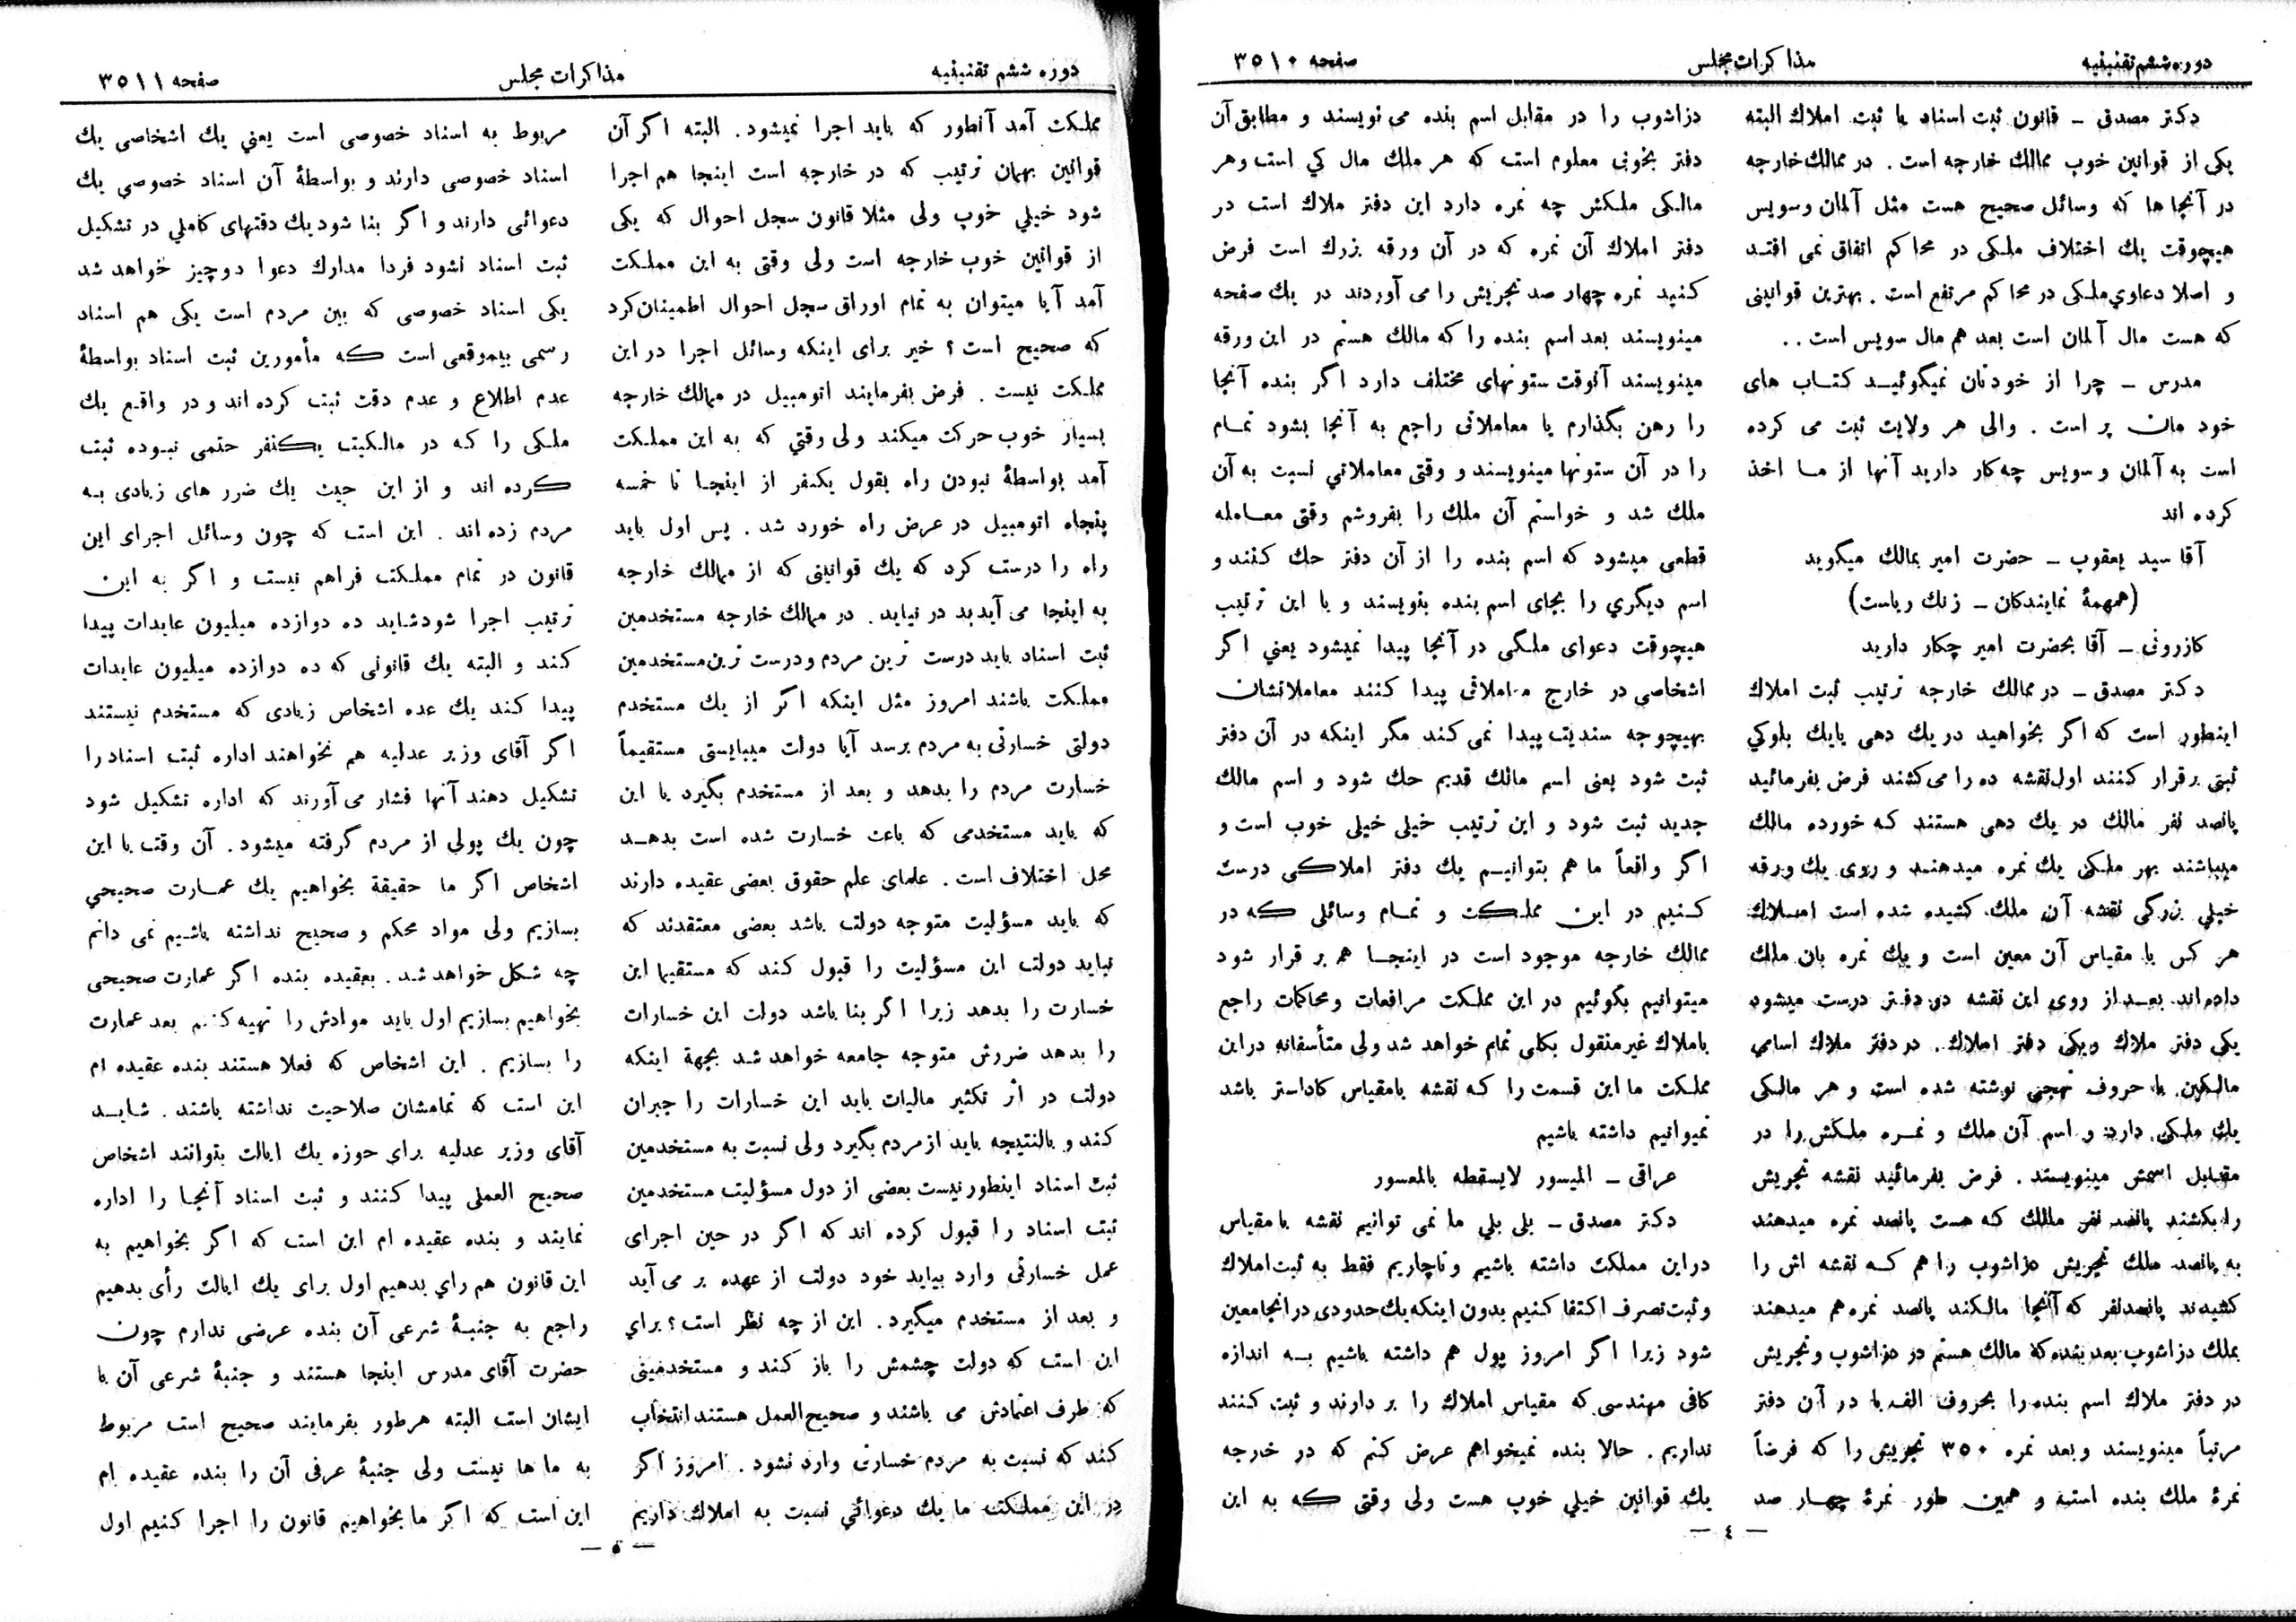 دوره ششم تقنینیه
مذاکرات مجلس
صفحه ۳۵۱۰
دکتر مصدق ـ قانون ثبت اسناد یا ثبت املاك البته
یکی از قوانین خوب ممالك خارجه است . در ممالك خارجه
در آنجا ها که وسائل صحیح هست مثل آلمان و سویس
هیچوقت یك اختلاف ملکی در محاکم اتفاق نمی افتد
و اصلا دعاوي ملکی در محاکم مرتفع است . بهترین قوانینی
که هست مال آلمان است بعد هم مال سویس است . .
مدرس ـ چرا از خودتان نمیگوئید کتاب های
خود مان پر است . والی هر ولایت ثبت می کرده
است به آلمان و سویس چه کار دارید آنها از ما اخذ
کرده اند
آقا سید یعقوب ـ حضرت امیر بمالك میگوید
(همهمهٔ نمایندکان ـ زنك ریاست)
کازرونی ـ آقا بحضرت امیر چکار دارید
دکتر مصدق ـ در ممالك خارجه ترتیب ثبت املاك
اینطور است که اگر بخواهید در یك دهی یا یك بلوکي
ثبتی برقرار کنند اول نقشه ده را می کشند فرض بفرمائید
پانصد نفر مالك در یك دهی هستند که خورده مالك
میباشند بهر ملکی یك نمره میدهند و روی یك ورقه
خیلي بزرگی نقشه آن ملك کشیده شده است املاك
هر کس با مقیاس آن معین است و یك نمره بان ملك
داده اند بعد از روی این نقشه دو دفتر درست میشود
یکی دفتر ملاك و یکی دفتر املاك . در دفتر ملاك اسامي
مالکین با حروف تهجی نوشته شده است و هر مالکی
یك ملکی دارد و اسم آن ملك و نمره ملکش را در
مقابل اسمش مینویسند . فرض بفرمائید نقشه تجریش
را بکشند پانصد نفر مالك که هست پانصد نمره میدهند
به پانصد ملك تجریش دزاشوب را هم که نقشه اش را
کشیدند پانصد نفر که آنجا مالکند پانصد نمره هم میدهند
بملك دزاشوب بعد بنده که مالك هستم در دزاشوب و تجریش
در دفتر ملاك اسم بنده را بحروف الف با در آن دفتر
مرتباً مینویسند و بعد نمره ۳۵۰ تجریش را که فرضاً
نمرهٔ ملك بنده است و همین طور نمرهٔ چهار صد
دزاشوب را در مقابل اسم بنده می نویسند و مطابق آن
دفتر بخوبی معلوم است که هر ملك مال کي است و هر
مالکی ملکش چه نمره دارد این دفتر ملاك است در
دفتر املاك آن نمره که در آن ورقه بزرك است فرض
کنید نمره چهار صد تجریش را می آوردند در یك صفحه
مینویسند بعد اسم بنده را که مالك هستم در این ورقه
مینویسند آنوقت ستونهای مختلف دارد اگر بنده آنجا
را رهن بگذارم یا معاملاتی راجع به آنجا بشود تمام
را در آن ستونها مینویسند و وقتی معاملاتي نسبت به آن
ملك شد و خواستم آن ملك را بفروشم وقتی معامله
قطعی میشود که اسم بنده را از آن دفتر حك کنند و
اسم دیگري را بجای اسم بنده بنویسند و با این ترتیب
هیچوقت دعوای ملکی در آنجا پیدا نمیشود یعني اگر
اشخاصی در خارج معاملاتی پیدا کنند معاملاتشان
بهیچوجه سندیت پیدا نمی کند مگر اینکه در آن دفتر
ثبت شود یعنی اسم مالك قدیم حك شود و اسم مالك
جدید ثبت شود و این ترتیب خیلی خیلی خوب است و
اگر واقعاً ما هم بتوانیم یك دفتر املاکی درست
کنیم در این مملکت و تمام وسائلی که در
ممالك خارجه موجود است در اینجا هم بر قرار شود
میتوانیم بگوئیم در این مملکت مرافعات و محاکمات راجع
باملاك غیر منقول بکلی تمام خواهد شد ولی متأسفانه در این
مملکت ما این قسمت را که نقشه بامقیاس کاداستر باشد
نمیوانیم داشته باشیم
عراقی ـ المیسور لایسقطه بالمعسور
دکتر مصدق ـ بلی بلي ما نمی توانیم نقشه با مقیاس
در این مملکت داشته باشیم و ناچاریم فقط به ثبت املاك
و ثبت تصرف اکتفا کنیم بدون اینکه یك حدودی در آنجا معین
شود زیرا اگر امروز پول هم داشته باشیم به اندازه
کافی مهندسی که مقیاس املاك را بر دارند و ثبت کنند
نداریم . حالا بنده نمیخواهم عرض کنم که در خارجه
یك قوانین خیلي خوب هست ولی وقتی که به این
— ٤ —
دوره ششم تقنینیه
مذاکرات مجلس
صفحه ۳۵۱۱
مملکت آمد آنطور که باید اجرا نمیشود . البته اگر آن
قوانین بهمان ترتیب که در خارجه است اینجا هم اجرا
شود خیلي خوب ولی مثلا قانون سجل احوال که یکی
از قوانین خوب خارجه است ولی وقتی به این مملکت
آمد آیا میتوان به تمام اوراق سجل احوال اطمینان کرد
که صحیح است ؟ خیر برای اینکه وسائل اجرا در این
مملکت نیست . فرض بفرمایند اتومبیل در ممالك خارجه
بسیار خوب حرکت میکند ولی وقتي که به این مملکت
آمد بواسطهٔ نبودن راه بقول یکنفر از اینجا تا خمسه
پنجاه اتومبیل در عرض راه خورد شد . پس اول باید
راه را درست کرد که یك قوانینی که از ممالك خارجه
به اینجا می آید بد در نیاید . در ممالك خارجه مستخدمین
ثبت اسناد باید درست ترین مردم و درست ترین مستخدمین
مملکت باشند امروز مثل اینکه اگر از یك مستخدم
دولتی خسارتی به مردم برسد آیا دولت میبایستی مستقیماً
خسارت مردم را بدهد و بعد از مستخدم بگیرد یا این
که باید مستخدمی که باعث خسارت شده است بدهد
محل اختلاف است . علمای علم حقوق بعضی عقیده دارند
که باید مسؤلیت متوجه دولت باشد بعضی معتقدند که
نباید دولت این مسؤلیت را قبول کند که مستقیما این
خسارت را بدهد زیرا اگر بنا باشد دولت این خسارات
را بدهد ضررش متوجه جامعه خواهد شد بجهة اینکه
دولت در اثر تکثیر مالیات باید این خسارات را جبران
کند و بالنتیجه باید از مردم بگیرد ولی نسبت به مستخدمین
ثبت اسناد اینطور نیست بعضی از دول مسؤلیت مستخدمین
ثبت اسناد را قبول کرده اند که اگر در حین اجرای
عمل خسارتی وارد بیاید خود دولت از عهده بر می آید
و بعد از مستخدم میگیرد . این از چه نظر است ؟ براي
این است که دولت چشمش را باز کند و مستخدمینی
که طرف اعتمادش می باشند و صحیح العمل هستند انتخاب
کند که نسبت به مردم خسارتی وارد نشود . امروز اگر
در این مملکت ما یك دعوائي نسبت به املاك داریم
مربوط به اسناد خصوصی است یعني یك اشخاصی یك
اسناد خصوصی دارند و بواسطهٔ آن اسناد خصوصي یك
دعوائی دارند و اگر بنا شود یك دقتهای کاملي در تشکیل
ثبت اسناد نشود فردا مدارك دعوا دو چیز خواهد شد
یکی اسناد خصوصی که بین مردم است یکی هم اسناد
رسمی بیموقعی است که مأمورین ثبت اسناد بواسطهٔ
عدم اطلاع و عدم دقت ثبت کرده اند و در واقع یك
ملکی را که در مالکیت یکنفر حتمی نبوده ثبت
کرده اند و از این حیث یك ضرر های زیادی به
مردم زده اند . این است که چون وسائل اجرای این
قانون در تمام مملکت فراهم نیست و اگر به این
ترتیب اجرا شود شاید ده دوازده میلیون عایدات پیدا
کند و البته یك قانونی که ده دوازده میلیون عایدات
پیدا کند یك عده اشخاص زیادی که مستخدم نیستند
اگر آقای وزیر عدلیه هم نخواهند اداره ثبت اسناد را
تشکیل دهند آنها فشار می آورند که اداره تشکیل شود
چون یك پولي از مردم گرفته میشود . آن وقت با این
اشخاص اگر ما حقیقة بخواهیم یك عمارت صحیحي
بسازیم ولی مواد محکم و صحیح نداشته باشیم نمی دانم
چه شکل خواهد شد . بعقیده بنده اگر عمارت صحیحی
بخواهیم بسازیم اول باید موادش را تهیه کنیم بعد عمارت
را بسازیم . این اشخاص که فعلا هستند بنده عقیده ام
این است که تمامشان صلاحیت نداشته باشند . شاید
آقای وزیر عدلیه براي حوزه یك ایالت بتوانند اشخاص
صحیح العملی پیدا کنند و ثبت اسناد آنجا را اداره
نمایند و بنده عقیده ام این است که اگر بخواهیم به
این قانون هم راي بدهیم اول برای یك ایالت رأی بدهیم
راجع به جنبهٔ شرعی آن بنده عرضی ندارم چون
حضرت آقای مدرس اینجا هستند و جنبهٔ شرعی آن با
ایشان است البته هرطور بفرمایند صحیح است مربوط
به ما ها نیست ولی جنبهٔ عرفی آن را بنده عقیده ام
این است که اگر ما بخواهیم قانون را اجرا کنیم اول
— ٥ —